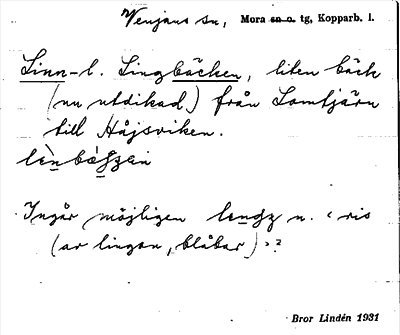 Venjans sn, Mora sn o. tg, Kopparb. l.
Linn- l. Lingbäcken, liten bäck
(nu utdikad) från Lomtjärn
till Håjsviken.
Ingår möjligen lengz n. 'ris
(av lingon, blåbär)'?
Bror Lindén 1931